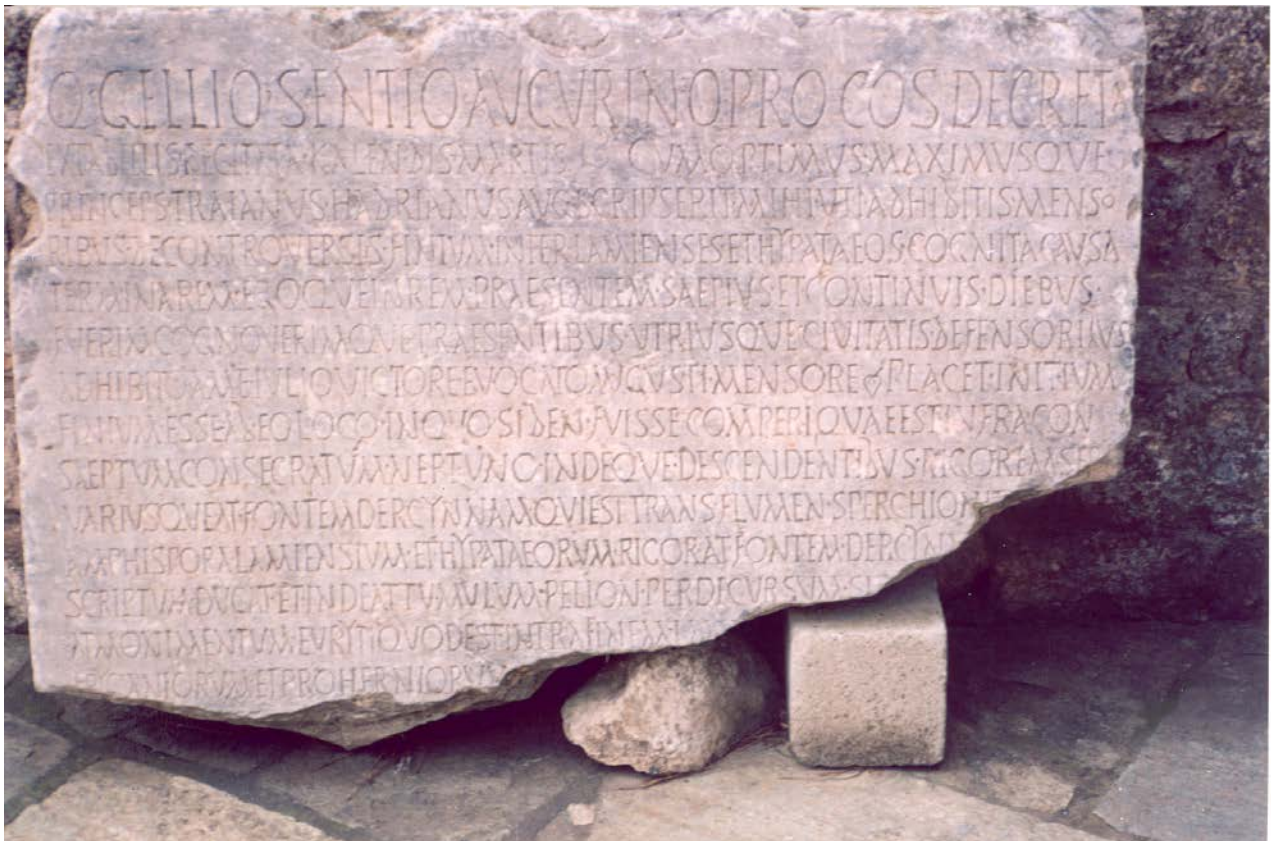 Q·GELLIO·SENTIO·AVGVRINO·PROCOS·DECRET·
EX·TABELLIS·RECITATA·KALENDIS·MARTIS CVM·OPTIMVS·MAXIMVSQVE·
PRINCEPS·TRAIANVS·HADRIANVS·AVG·SCRIPSERIT·MIHI·VTI·ADHIBITIS·MENSO
RIBVS·DE·CONTROVERSIS·FINIVM·INTER·LAMIENSES·ET·HYPATAEOS·COGNITA·CAVSA·
TERMINAREM·EGOQVE·IN·REM·PRAESENTEM·SAEPIVS·ET·CONTINVIS·DIEBVS·
FVERIM·COGNOVERIMQVE·PRAESENTIBVS·VTRIVSQVE·CIVITATIS·DEFENSORIBVS
ADHIBITO·A·ME·IVLIO·VICTORE·EVOCATO·AVGVSTI·MENSORE PLACET·INITIVM
FINIVM·ESSE·AB·EO·LOCO·IN·QVO·SIDEN·FVISSE·COMPERI·QVAE·EST·INFRA·CON
SAEPTVM·CONSECRATVM·NEPTVNO·INDEQVE·DESCENDENTIBVS·RIGOREM·SER
VARI·VSQVE·AT·FONTEM·DERCYNNAM·QVI·EST·TRANS·FLVMEN·SPERCHION
AMPHISPORA·LAMIENSIVM·ET·HYPATAEORVM·RIGOR·AT·FONTEM·DERCYNN
SCRIPTVM·DVCAT·ET·INDE·AT·TVMVLVM·PELION·PER·DECVRSVM·SI
AT·MONIMENTVM·EVRITI·QVOD·EST·INTRA·FINEM·LA
ET·PROHERNIORVM